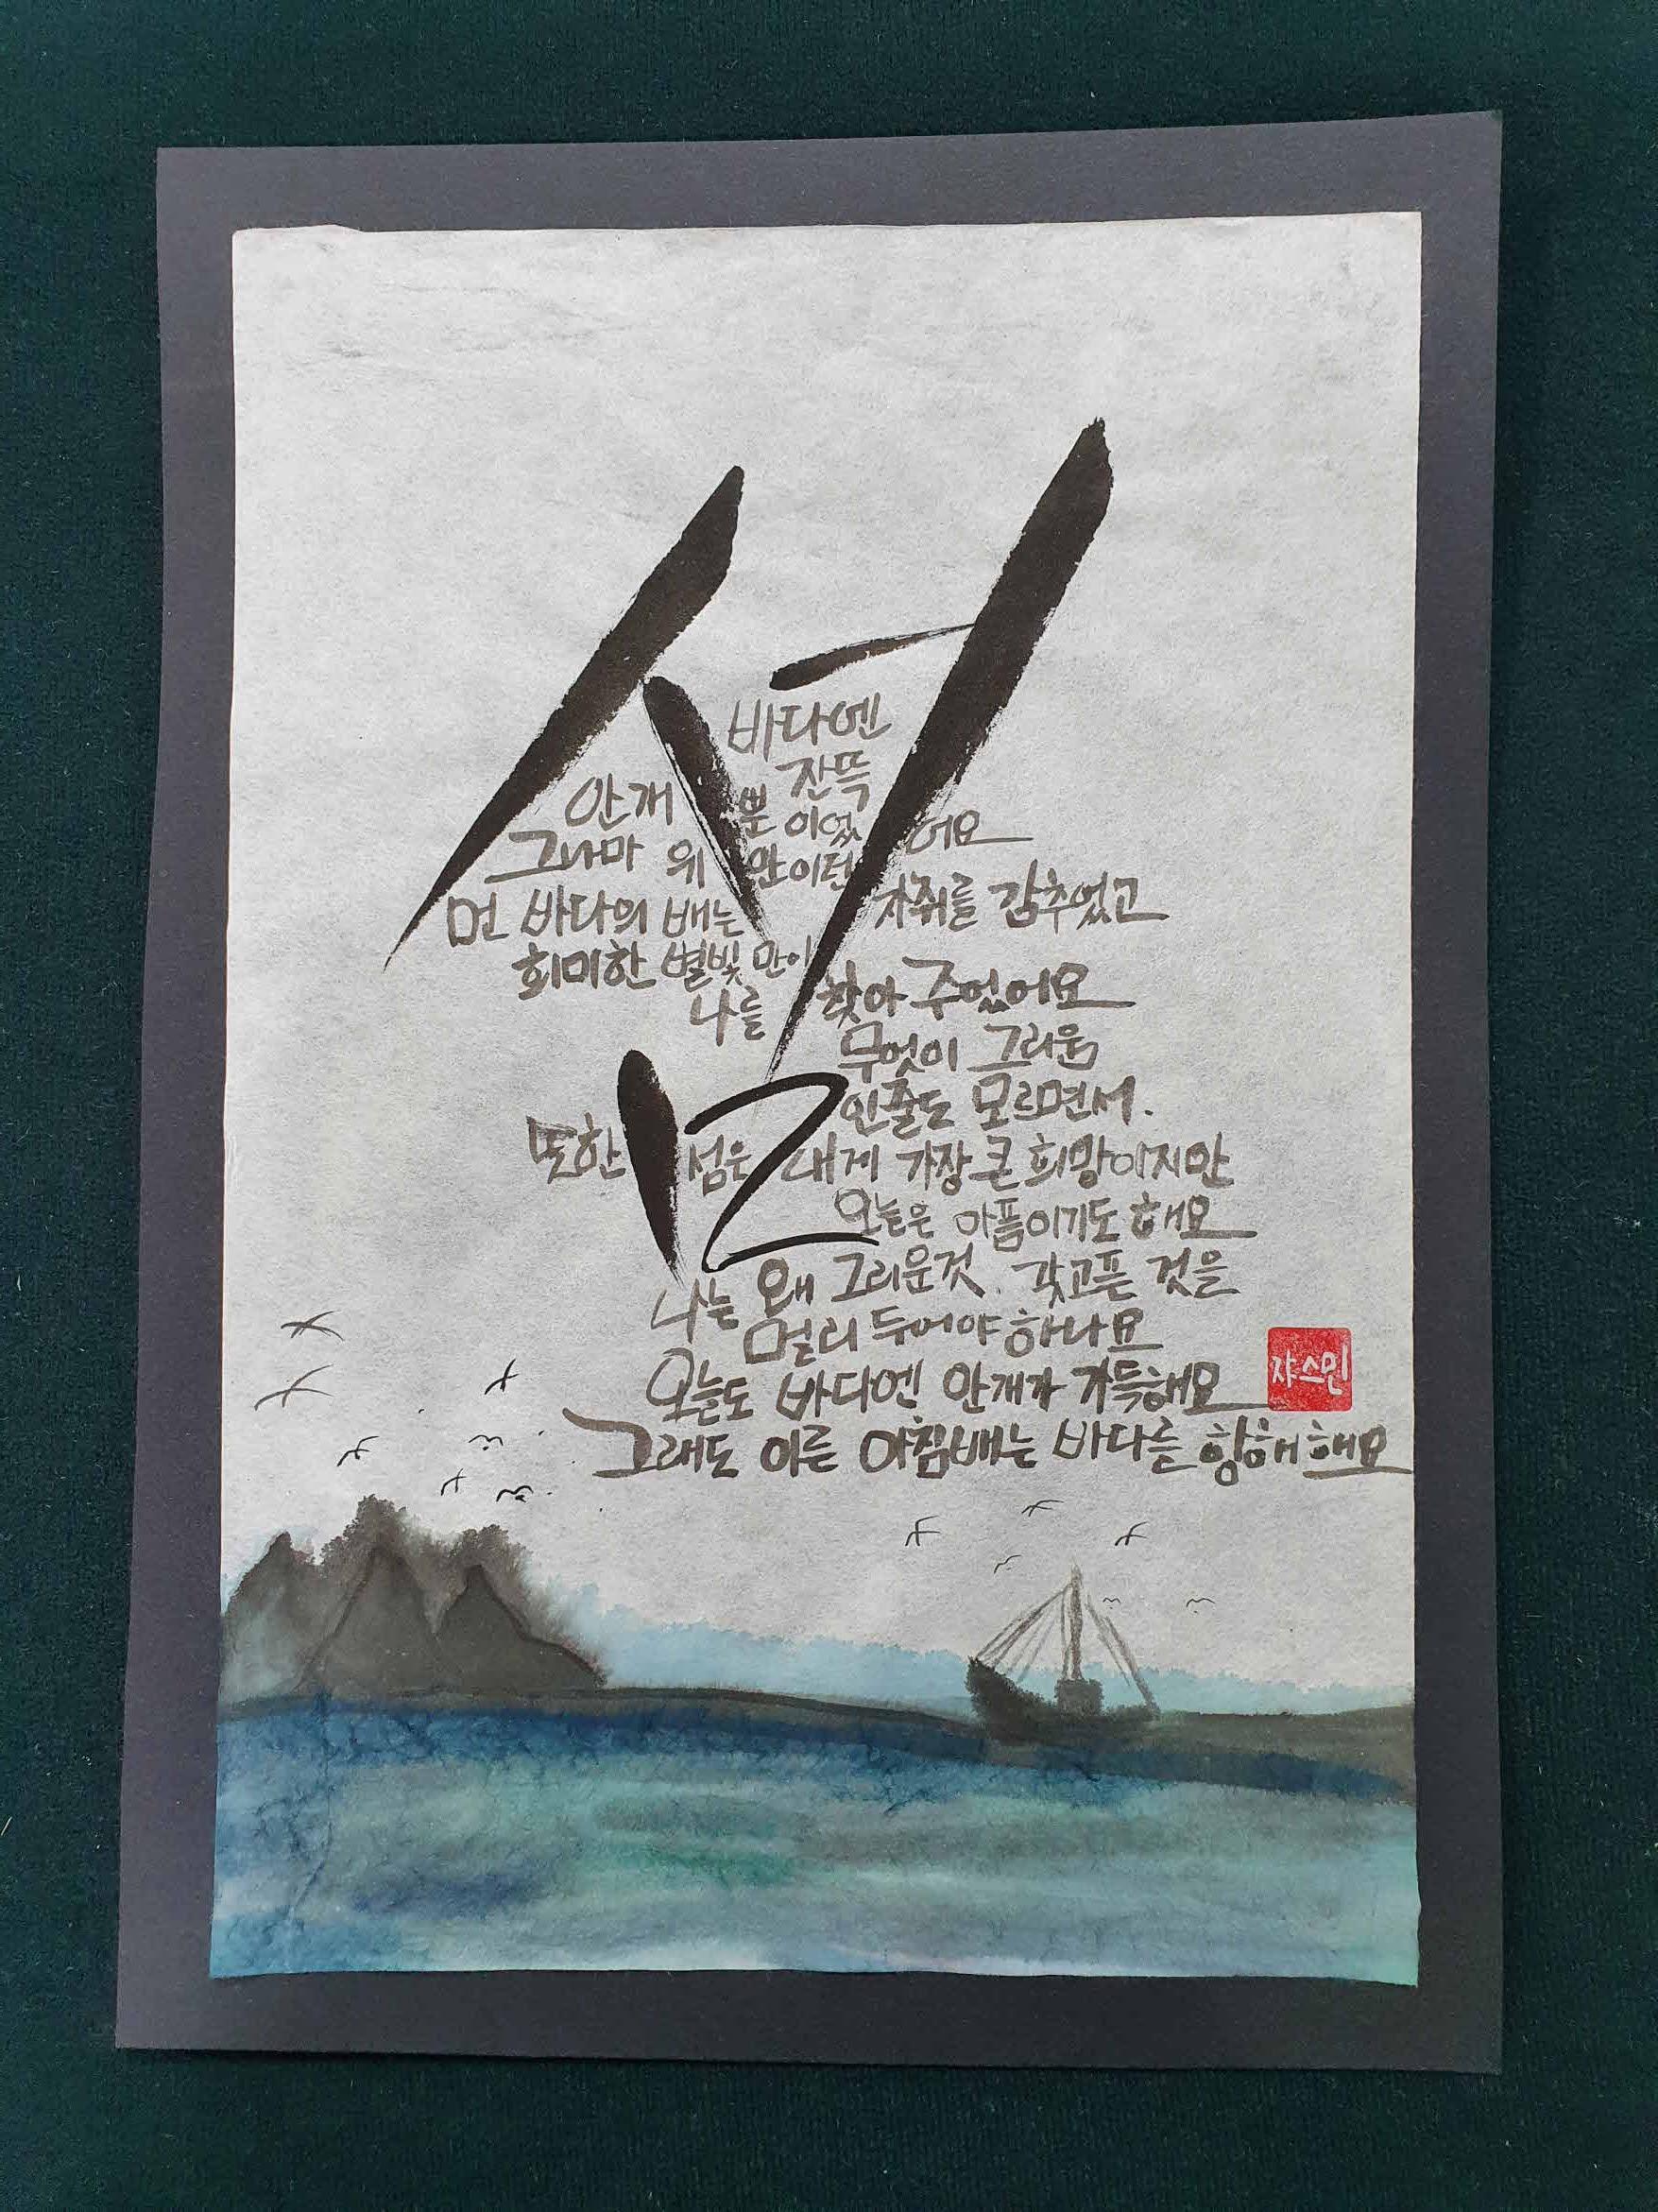 섬
바다엔
잔뜩
안개 뿐 이었어요
그나마 위안이던
먼 바다의 배는 자취를 감추었고
희미한 별빛만이
나를 찾아 주었어요
무엇이 그리움
인줄도 모르면서.
또한 섬은 내게 가장 큰 희망이지만
오늘은 아픔이기도 해요
나는 왜 그리운것. 갖고픈 것을
멀리 두어야 하나요
오늘도 바다엔 안개가 가득해요
그래도 이른 아침배는 바다를 항해해요
쟈스민